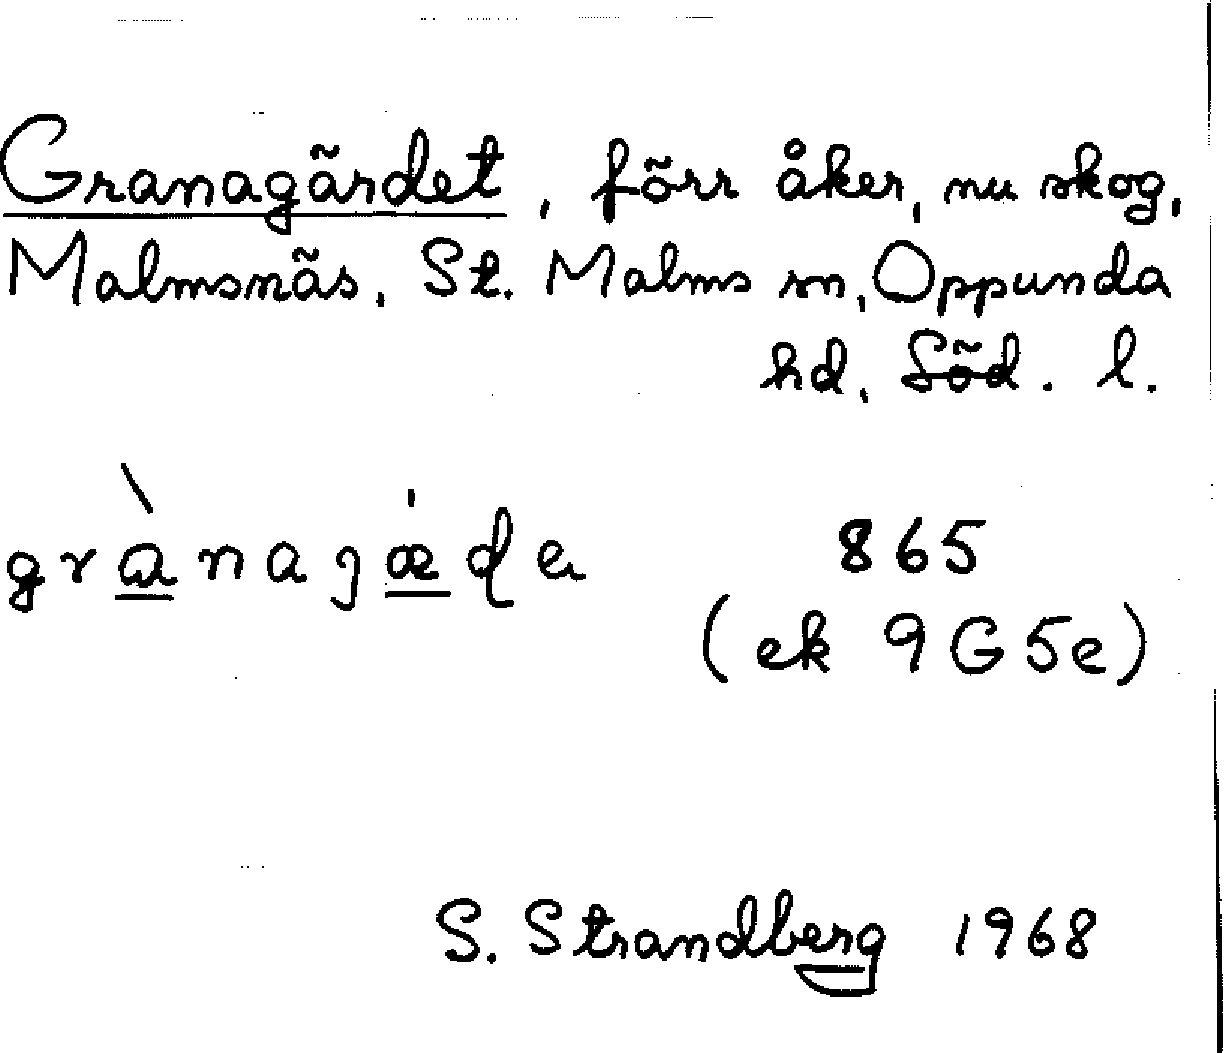 Granagärdet, förr åker, nu skog,
Malmsnäs, St. Malms sn, Oppunda
hd, Söd. l.
grànagæ̀de 865
(ek 9G5e)
S. Strandberg 1968